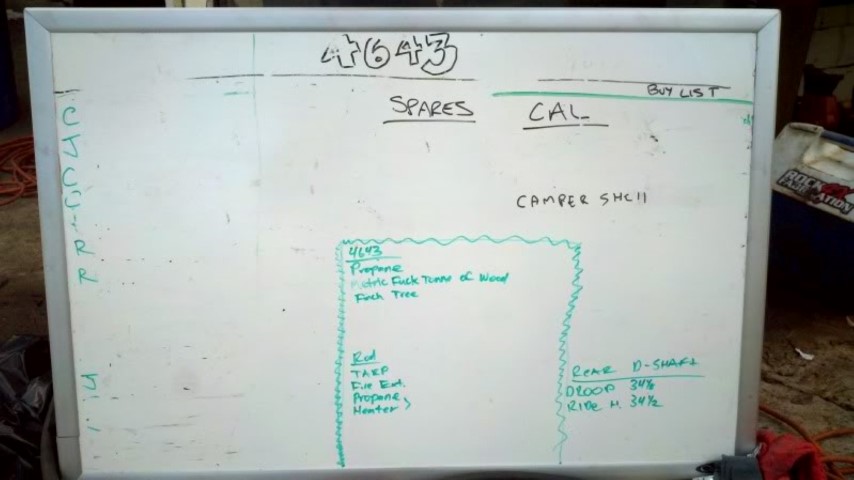 4643
BUY LIST
SPARES CAL
CAMPER SHEll
4643
Propane
Metric Fuck Tonne of Wood
Fuck Tree
Rod
TARP
Fire Ext.
Propane
Heater
REAR D-SHAFT
DROOP 34⅛
RIDE H. 34½
ROCK